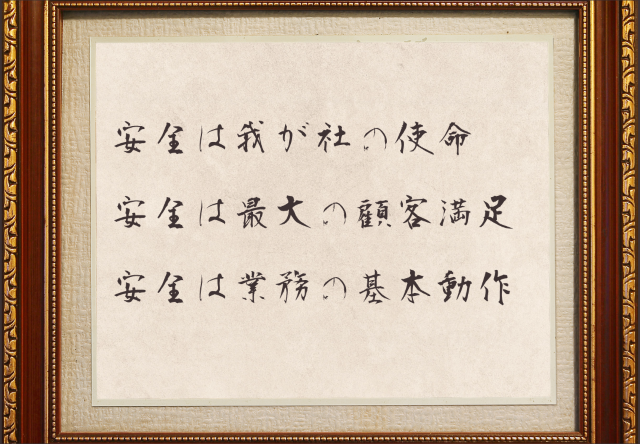 安全は我が社の使命
安全は最大の顧客満足
安全は業務の基本動作